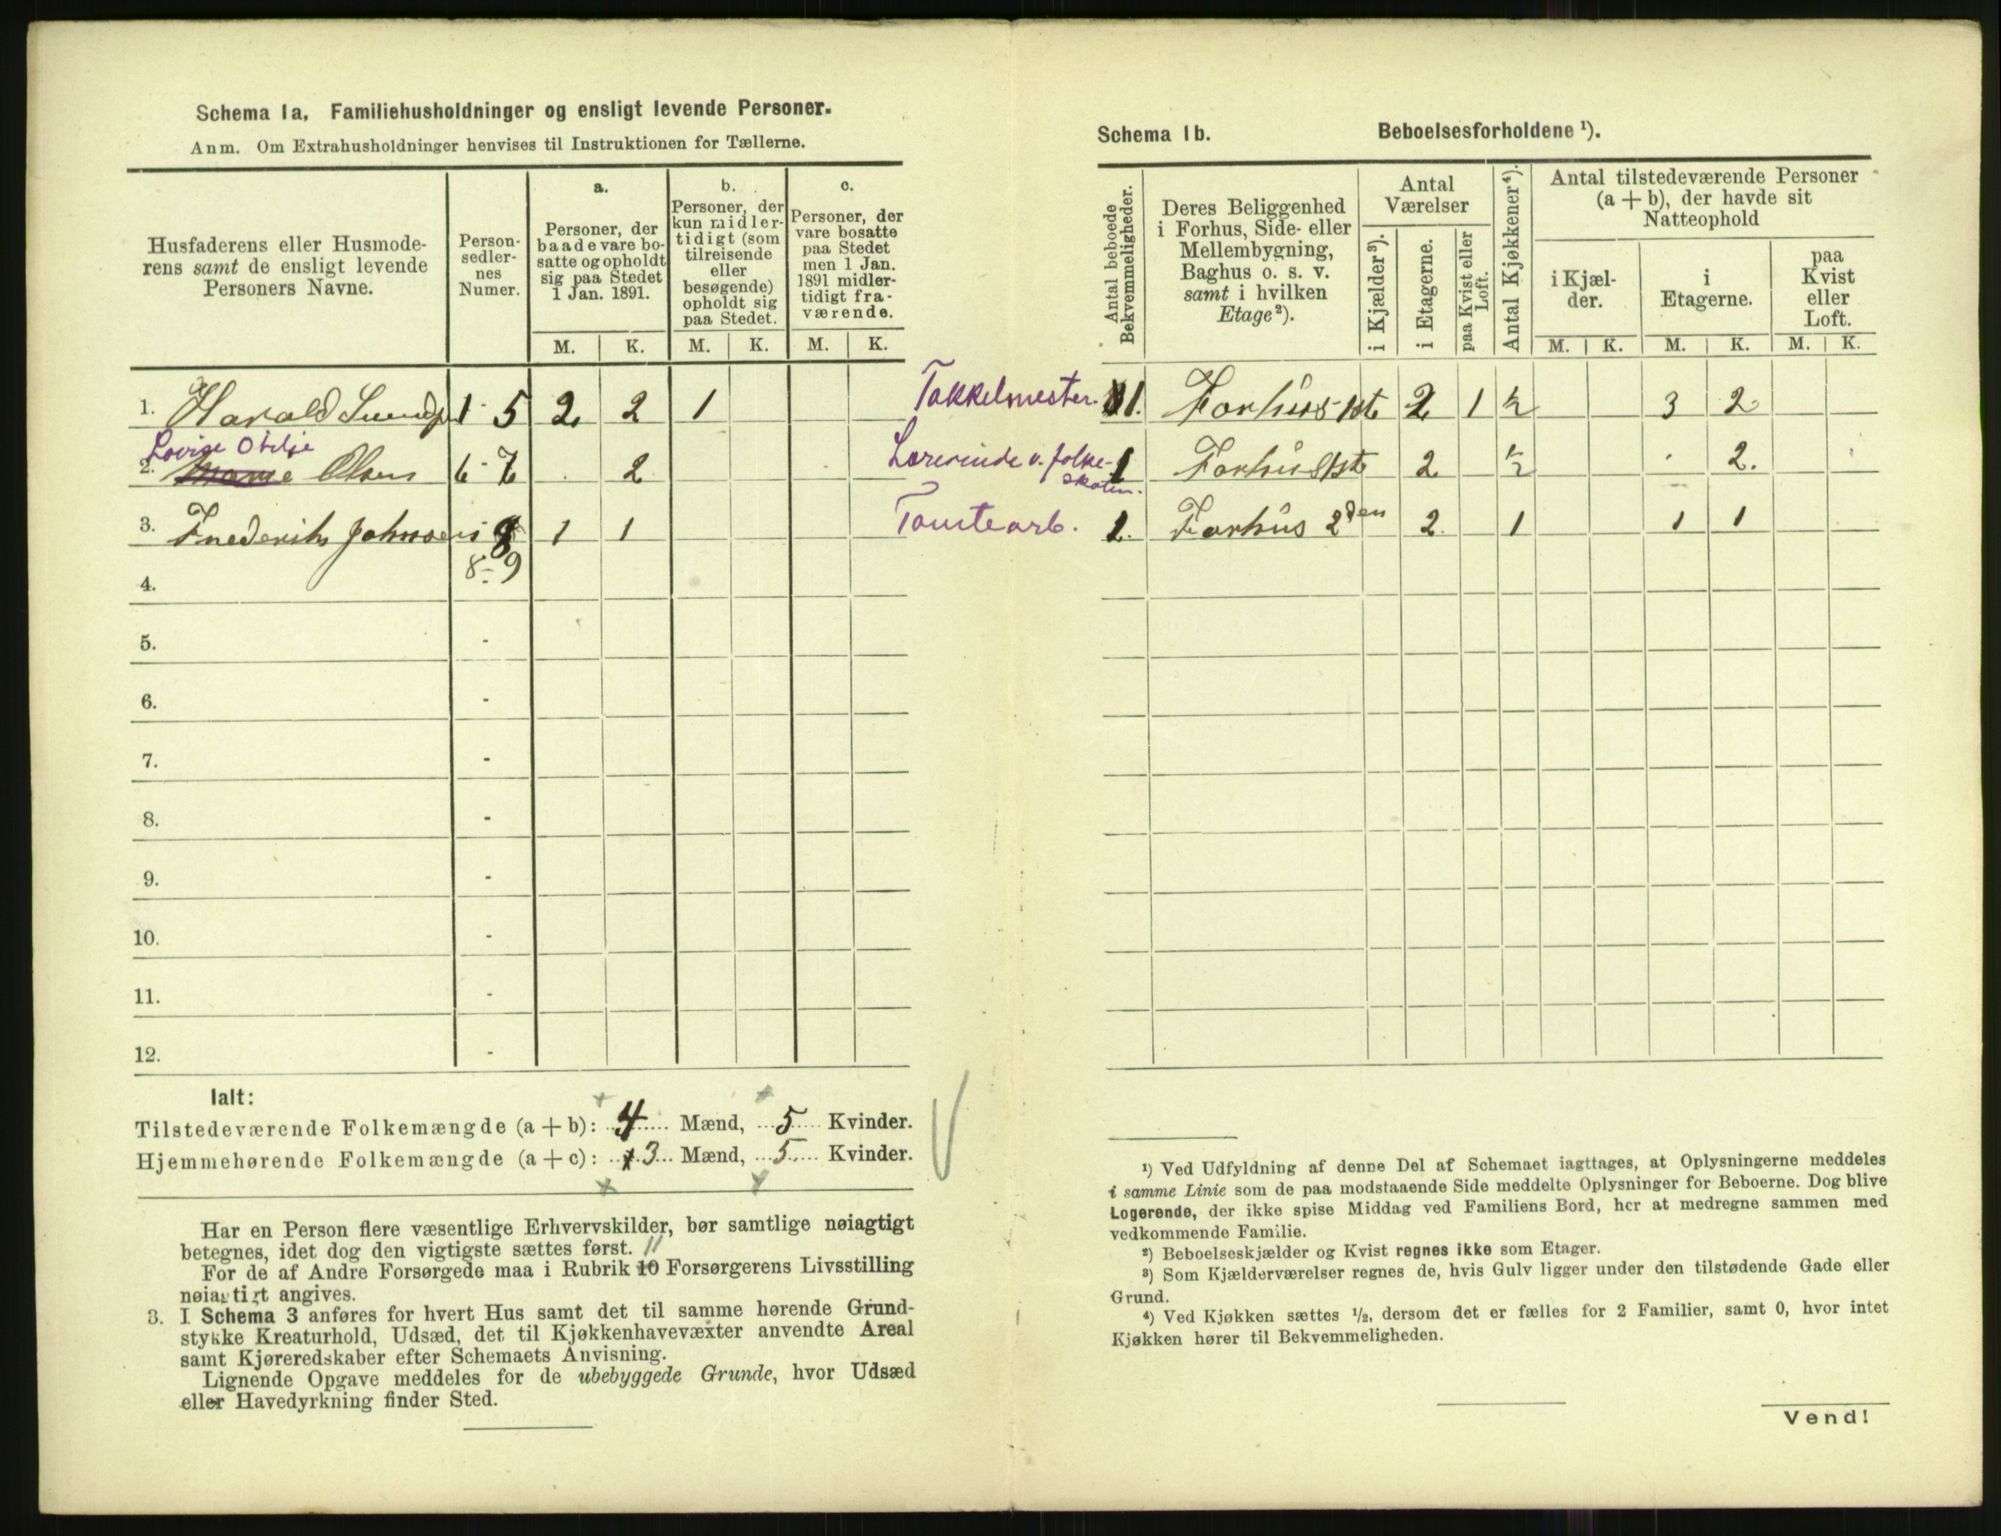 Schema 1a. Familiehusholdninger og ensligt levende Personer.
Anm. Om Extrahusholdninger henvises til Instruktionen for Tællerne.
Husfaderens eller Husmoderens samt de ensligt levende Personers Navne.
Personsedlernes Numer.
a.
Personer, der baade vare bosatte og opholdt sig paa Stedet 1 Jan. 1891.
b.
Personer, der kun midlertidigt (som tilreisende eller besøgende) opholdt sig paa Stedet.
c.
Personer, der vare bosatte paa Stedet men 1 Jan. 1891 midlertidigt fraværende.
M. K. M. K. M. K.
1. Harald 1 - 5 2 2 1
Lovise Otilje
2. Olsen 6 - 7 2
3. Frederik Johnsen 8 1 1
8 - 9
4.
5. -
6. -
7. -
8. -
9. -
10. -
11. -
12. -
Ialt:
Tilstedeværende Folkemængde (a + b): 4 Mænd, 5 Kvinder.
Hjemmehørende Folkemængde (a + c): 3 Mænd, 5 Kvinder.
Har en Person flere væsentlige Erhvervskilder, bør samtlige nøiagtigt
betegnes, idet dog den vigtigste sættes først. 11
For de af Andre Forsørgede maa i Rubrik 10 Forsørgerens Livsstilling
nøiagtigt angives.
3. I Schema 3 anføres for hvert Hus samt det til samme hørende Grund-
stykke Kreaturhold, Udsæd, det til Kjøkkenhavevæxter anvendte Areal
samt Kjøreredskaber efter Schemaets Anvisning.
Lignende Opgave meddeles for de ubebyggede Grunde, hvor Udsæd
eller Havedyrkning finder Sted.
Schema 1b. Beboelsesforholdene ¹).
Antal beboede Bekvemmeligheder.
Deres Beliggenhed i Forhus, Side- eller Mellembygning, Baghus o. s. v. samt i hvilken Etage²).
Antal Værelser
i Kjælder³).
i Etagerne.
paa Kvist eller Loft.
Antal Kjøkkener⁴).
Antal tilstedeværende Personer (a + b), der havde sit Natteophold
i Kjælder.
i Etagerne.
paa Kvist eller Loft.
M. K. M. K. M. K.
Takkelmester 1. Forhus 1st 2 1 ½ 3 2
Lærerinde v. folke- 1 Forhus 1st 2 ½ 2.
skolen.
Tomtearb. 1. Forhus 2den 2. 1 1 1
¹) Ved Udfyldning af denne Del af Schemaet iagttages, at Oplysningerne meddeles
i samme Linie som de paa modstaaende Side meddelte Oplysninger for Beboerne. Dog blive
Logerende, der ikke spise Middag ved Familiens Bord, her at medregne sammen med
vedkommende Familie.
²) Beboelseskjælder og Kvist regnes ikke som Etager.
³) Som Kjælderværelser regnes de, hvis Gulv ligger under den tilstødende Gade eller
Grund.
⁴) Ved Kjøkken sættes ½, dersom det er fælles for 2 Familier, samt 0, hvor intet
Kjøkken hører til Bekvemmeligheden.
Vend!